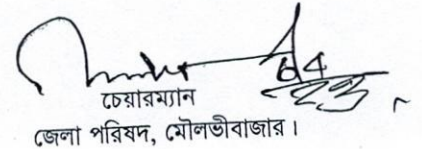 চেয়ারম্যান
জেলা পরিষদ, মৌলভীবাজার।